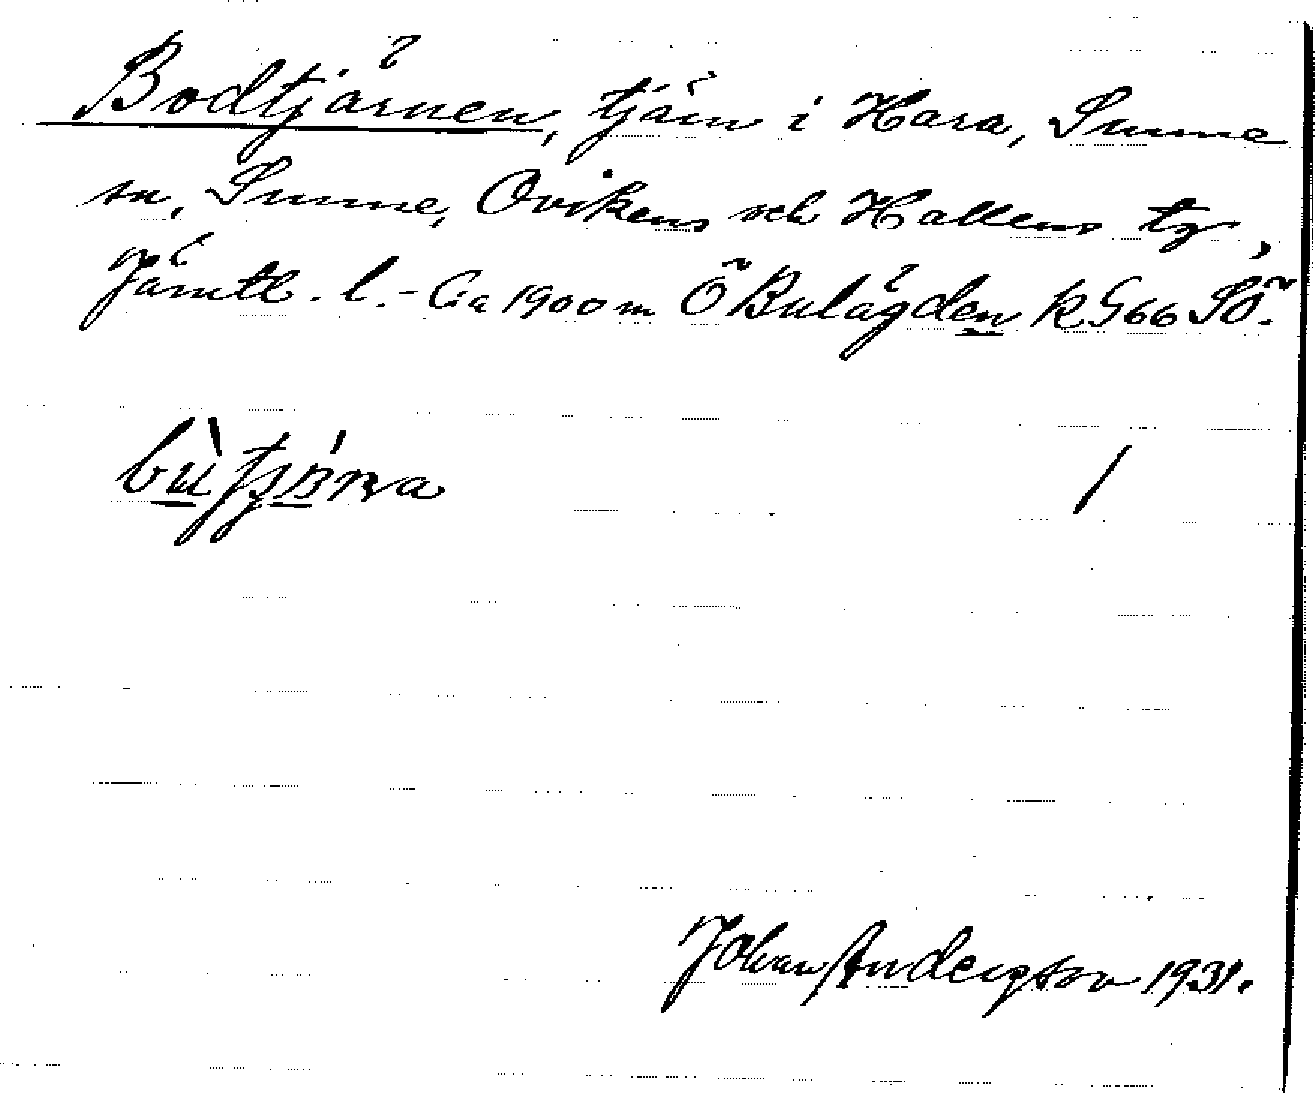 Bodtjärnen, tjärn i Hara, Sunne
sn, Sunne, Ovikens och Hallens tg,
Jämtl. l. - Ca 1900 m Ö Bulägden k G66 SÖ.
/
Johan Anderson 1931.